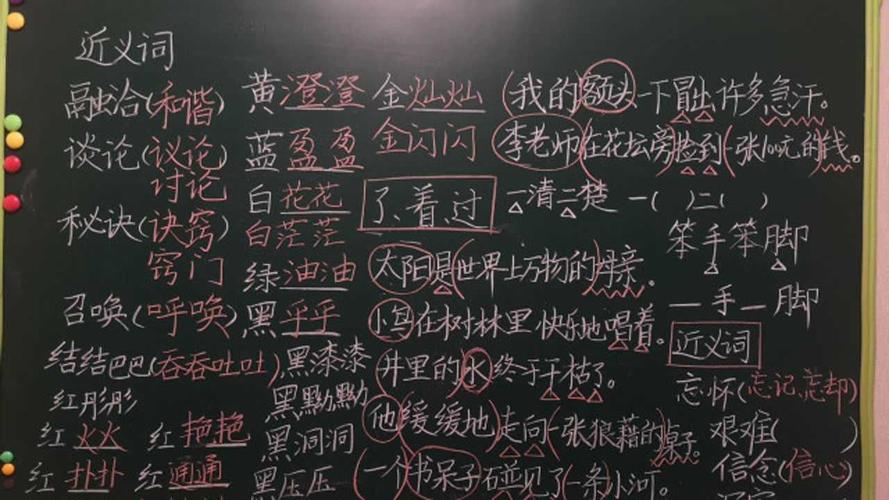 近义词
融洽(和谐)
谈论(议论
讨论
秘诀(诀窍)
窍门
召唤(呼唤)
结结巴巴(吞吞吐吐)
红彤彤
红火火 红艳艳
红扑扑 红通通
黄澄澄 金灿灿
蓝盈盈 金闪闪
白花花
白茫茫
绿油油
黑乎乎
黑漆漆
黑黝黝
黑洞洞
黑压压
了、着、过
(我的)额头一下冒出许多急汗。
李老师(在花坛旁)捡到(一张100元的)钱。
一清二楚 一( )二( )
太阳是(世界上万物的)母亲。
小鸟在树林里快乐地唱着。
井里的水终于干枯了。
他(缓缓地)走向(一张狼藉的)桌子。
(一个)书呆子碰见了(一条)小河。
笨手笨脚
一手一脚
近义词
忘怀(忘记、忘却)
艰难( )
信念(信心)